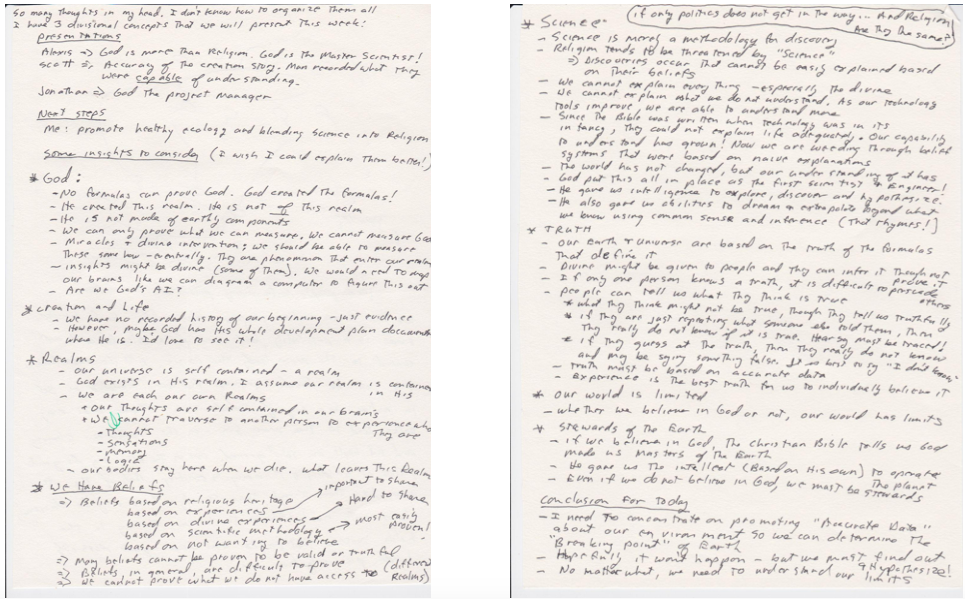 So many thoughts in my head. I don't know how to organize them all
I have 3 divisional concepts that we will present this week:
Presentations
Alexis => God is more than Religion. God is the Master Scientist!
Scott => Accuracy of the creation story. Man recorded what they
were capable of understanding.
Jonathan => God the project manager
Next steps
Me: promote healthy ecology and blending science into Religion
Some insights to consider (I wish I could explain them better!)
* God:
- No formulas can prove God. God created the formulas!
- He created this realm. He is not of this realm
- He is not made of earthly components
- We can only prove what we can measure. We cannot measure God
- Miracles & divine intervention; we should be able to measure
These some how - eventually. They are phenomenon that enter our realm
- insights might be divine (some of them). We would need to map
our brains like we can diagram a computer to figure this out
- Are we God's AI?
* Creation and Life
- We have no recorded history of our beginning - just evidence
- However, maybe God has His whole development plan documented
where He is. I'd love to see it!
* Realms
- Our universe is self contained - a realm
- God exists in His realm. I assume our realm is contained
in His
- We are each our own Realms
* Our Thoughts are self contained in our brains
* We cannot traverse to another person to experience who
They are
- Thoughts
- Sensations
- memory
- Logic
- our bodies stay here when we die. what leaves This Realm
* We Have Beliefs
=> Beliefs based on religious heritage
based on experiences important to share
based on divine experiences Hard to share
based on scientific methodology most easily
proven!
based on not wanting to believe
=> Many beliefs cannot be proven to be valid or truthful
=> Beliefs, in general, are difficult to prove
=> We cannot prove what we do not have access to (different
Realms)
if only politics does not get in the way... And Religion
Are they the same?
* Science:
- Science is merely a methodology for discovery
- Religion tends to be threatened by "Science"
=> Discoveries occur that cannot be easily explained based
on their beliefs
- We cannot explain everything - especially the divine
- We cannot explain what we do not understand. As our technology
tools improve, we are able to understand more
- Since the Bible was written when technology was in its
infancy, they could not explain life adequately. Our capability
to understand has grown! Now we are weeding through belief
systems that were based on naive explanations
- The world has not changed, but our understanding of it has
- God put this all in place as the first scientist & Engineer!
- He gave us intelligence to explore, discover and hypothesize!
- He also gave us abilities to dream & extrapolate beyond what
we know using common sense and inference (That rhymes!)
* TRUTH
- Our Earth & Universe are based on the truth of the formulas
That define it
- Divine might be given to people and they can infer it though not
prove it
- If only one person knows a truth, it is difficult to persuade
others
- People can tell us what They Think is true
* what They Think might not be true, Though They tell us truthfully
* if They are just repeating what someone else told them, Then
They really do not know if it is true. Hearsay must be traced!
* if They guess at the truth, Then They really do not know
and may be saying something false. It is best to say "I don't know"
- Truth must be based on accurate data
- Experience is the best truth for us to individually believe it
* Our world is limited
- whether we believe in God or not, our world has limits
* Stewards of the Earth
- if we believe in God, The Christian Bible tells us God
made us Masters of the Earth
- He gave us the intellect (Based on His own) to operate
The planet
- Even if we do not believe in God, we must be stewards
Conclusion For Today
- I need to concentrate on promoting "Accurate Data"
about our environment so we can determine the
"Breaking point" of Earth
- Hopefully, it won't happen - but we must find out
& Hypothesize!
- No matter what, we need to understand our limits